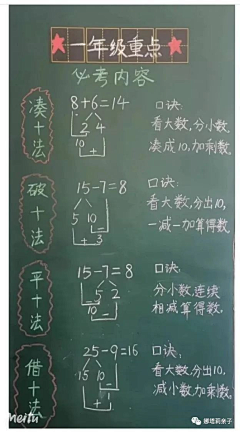 一年级重点
必考内容
凑十法
8+6=14
2 4
10
+
口诀:
看大数,分小数,
凑成10,加剩数,
破十法
15-7=8
5 10
-
+ 3
口诀:
看大数,分出10,
一减一加算得数,
平十法
15-7=8
5 2
10
-
口诀.
分小数,连续
相减算得数.
借十法
25-9=16
15 10
-
+ 1
口诀:
看大数,分出10,
减小数,加乘数,
Meitu
娜塔莉亲子